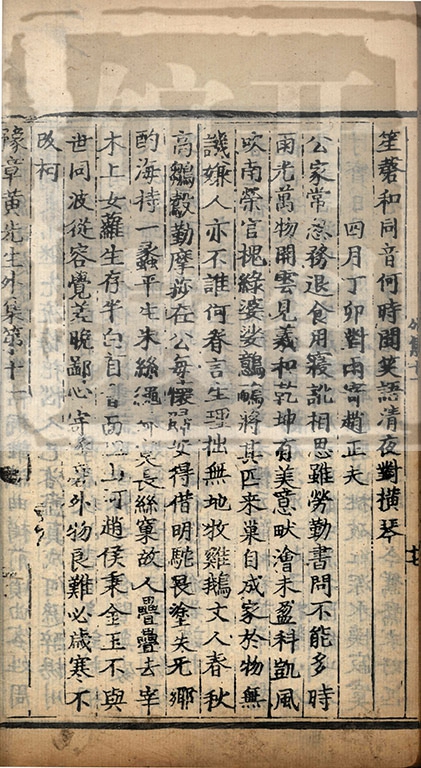 笙磬和同音何時開笑語清夜對橫琴
四月丁卯對雨寄趙正夫
公家常怱務退食用寢訛相思雖勞勤書問不能多時
雨光萬物開雲見羲和乾坤有美意畎澮未盈科凱風
吹南榮官槐綠婆娑鸛鵒將其匹來巢自成家於物無
譏嫌人亦不誰何眷言生理拙無地牧雞鵝文人春秋
高鵷鷇勤摩挲在公每懷歸安得借明駝畏塗失无鄉
酌海持一蠡平生朱絲繩 長絲窠故人疊疊去宰
木上女蘿生存半白首 面 山河趙侯秉金玉不與
世同波從容覺差晚鄙心寄 磨外物良難必歲寒不
改柯
豫章黃先生外集第十一